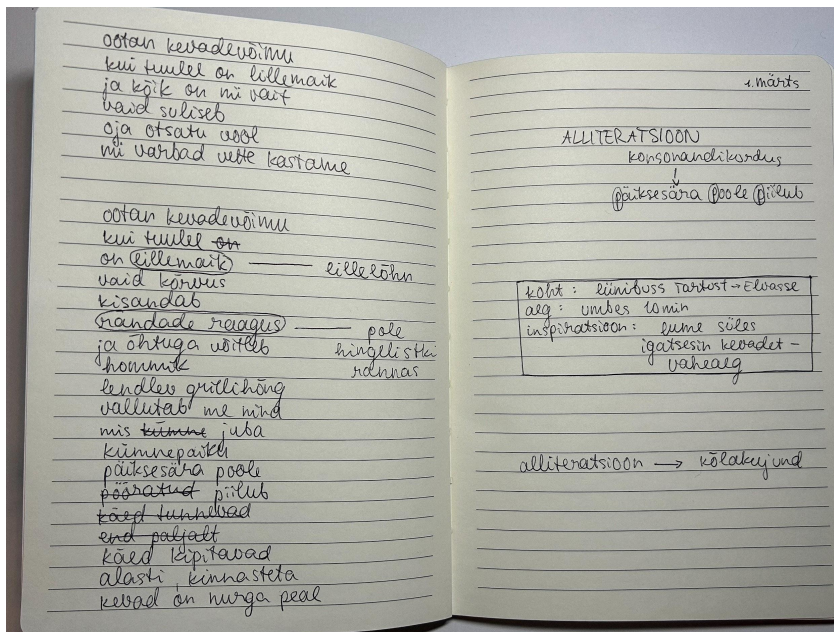 ootan kevadevõimu
kui tuulel on lillemaik
ja kõik on nii vait
vaid suliseb
oja otsatu vool
nii varbad vette kastame
ootan kevadevõimu
kui tuulel on
on lillemaik — lillelõhn
vaid kõrvus
kisandab
randade raagus — pole
ja õhtuga võitleb hingelistki
hommik rannas
lendlev grillihõng
vallutab me nina
mis kümne juba
kümnepaiku
päiksesära poole
pööratud piilub
käed tunnevad
end paljalt
käed kipitavad
alasti, kinnasteta
kevad on nurga peal
1. märts
ALLITERATSIOON
konsonandikordus
↓
päiksesära poole piilub
koht: liinibuss Tartust → Elvasse
aeg: umbes 10 min
inspiratsioon: lume süles
igatsesin kevadet –
vaheaeg
alliteratsioon → kõlakujund